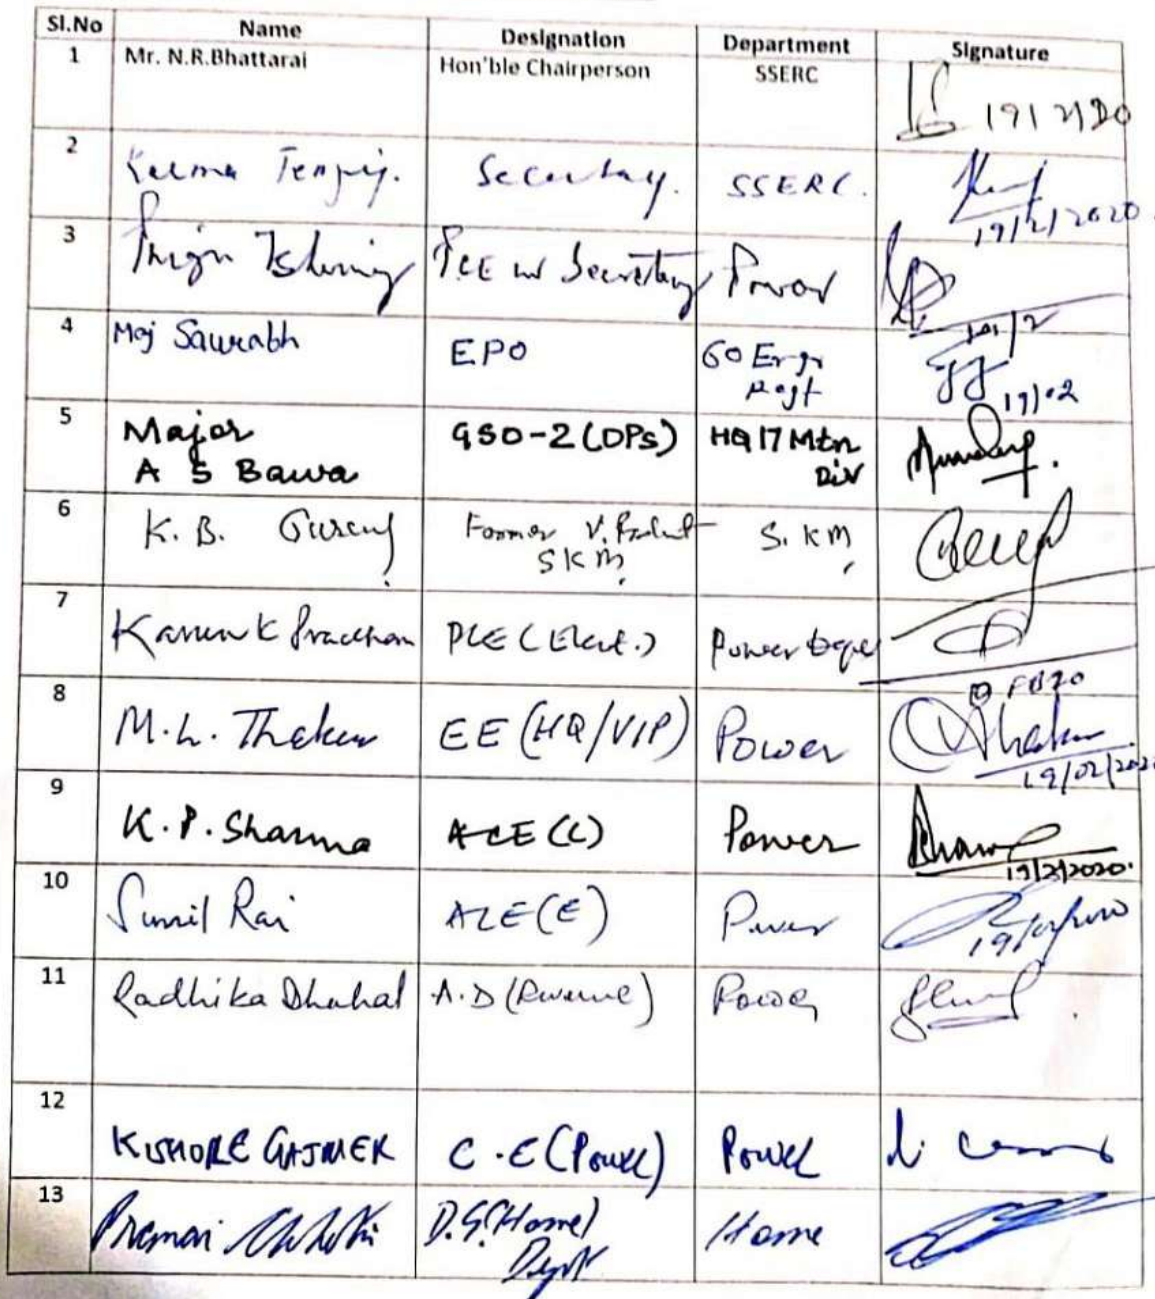 Sl.No Name Designation Department Signature
1 Mr. N.R.Bhattarai Hon'ble Chairperson SSERC
19/2/20
2 Karma Secretary. SSERC.
19/2/2020.
3 PCE Secretary Power
4 Maj Saurabh EPO 60 Engr
Regt
19/02
5 Major GSO-2 (OPs) HQ 17 Mtn
A S Bawa Div
6 K.B. Gurung Former V. SKM
SKM,
7 Karun K Pradhan PCE (Elect.) Power Dept
8 M.L. EE (HQ/VIP) Power
19/02/202
9 K.P. Sharma ACE (C) Power
19/2/2020.
10 Sunil Rai ACE (E) Power
11 Radhika Dhakal A.D (Revenue) Power
12 KISHORE GAJMER C.E (Power) Power
13 D.S.(Home) Home
Deptt